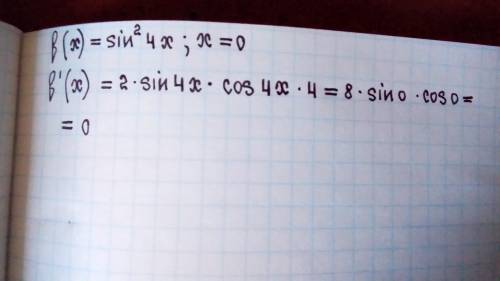 f(x) = sin² 4x ; x = 0
f'(x) = 2 · sin 4x · cos 4x · 4 = 8 · sin 0 · cos 0 =
= 0